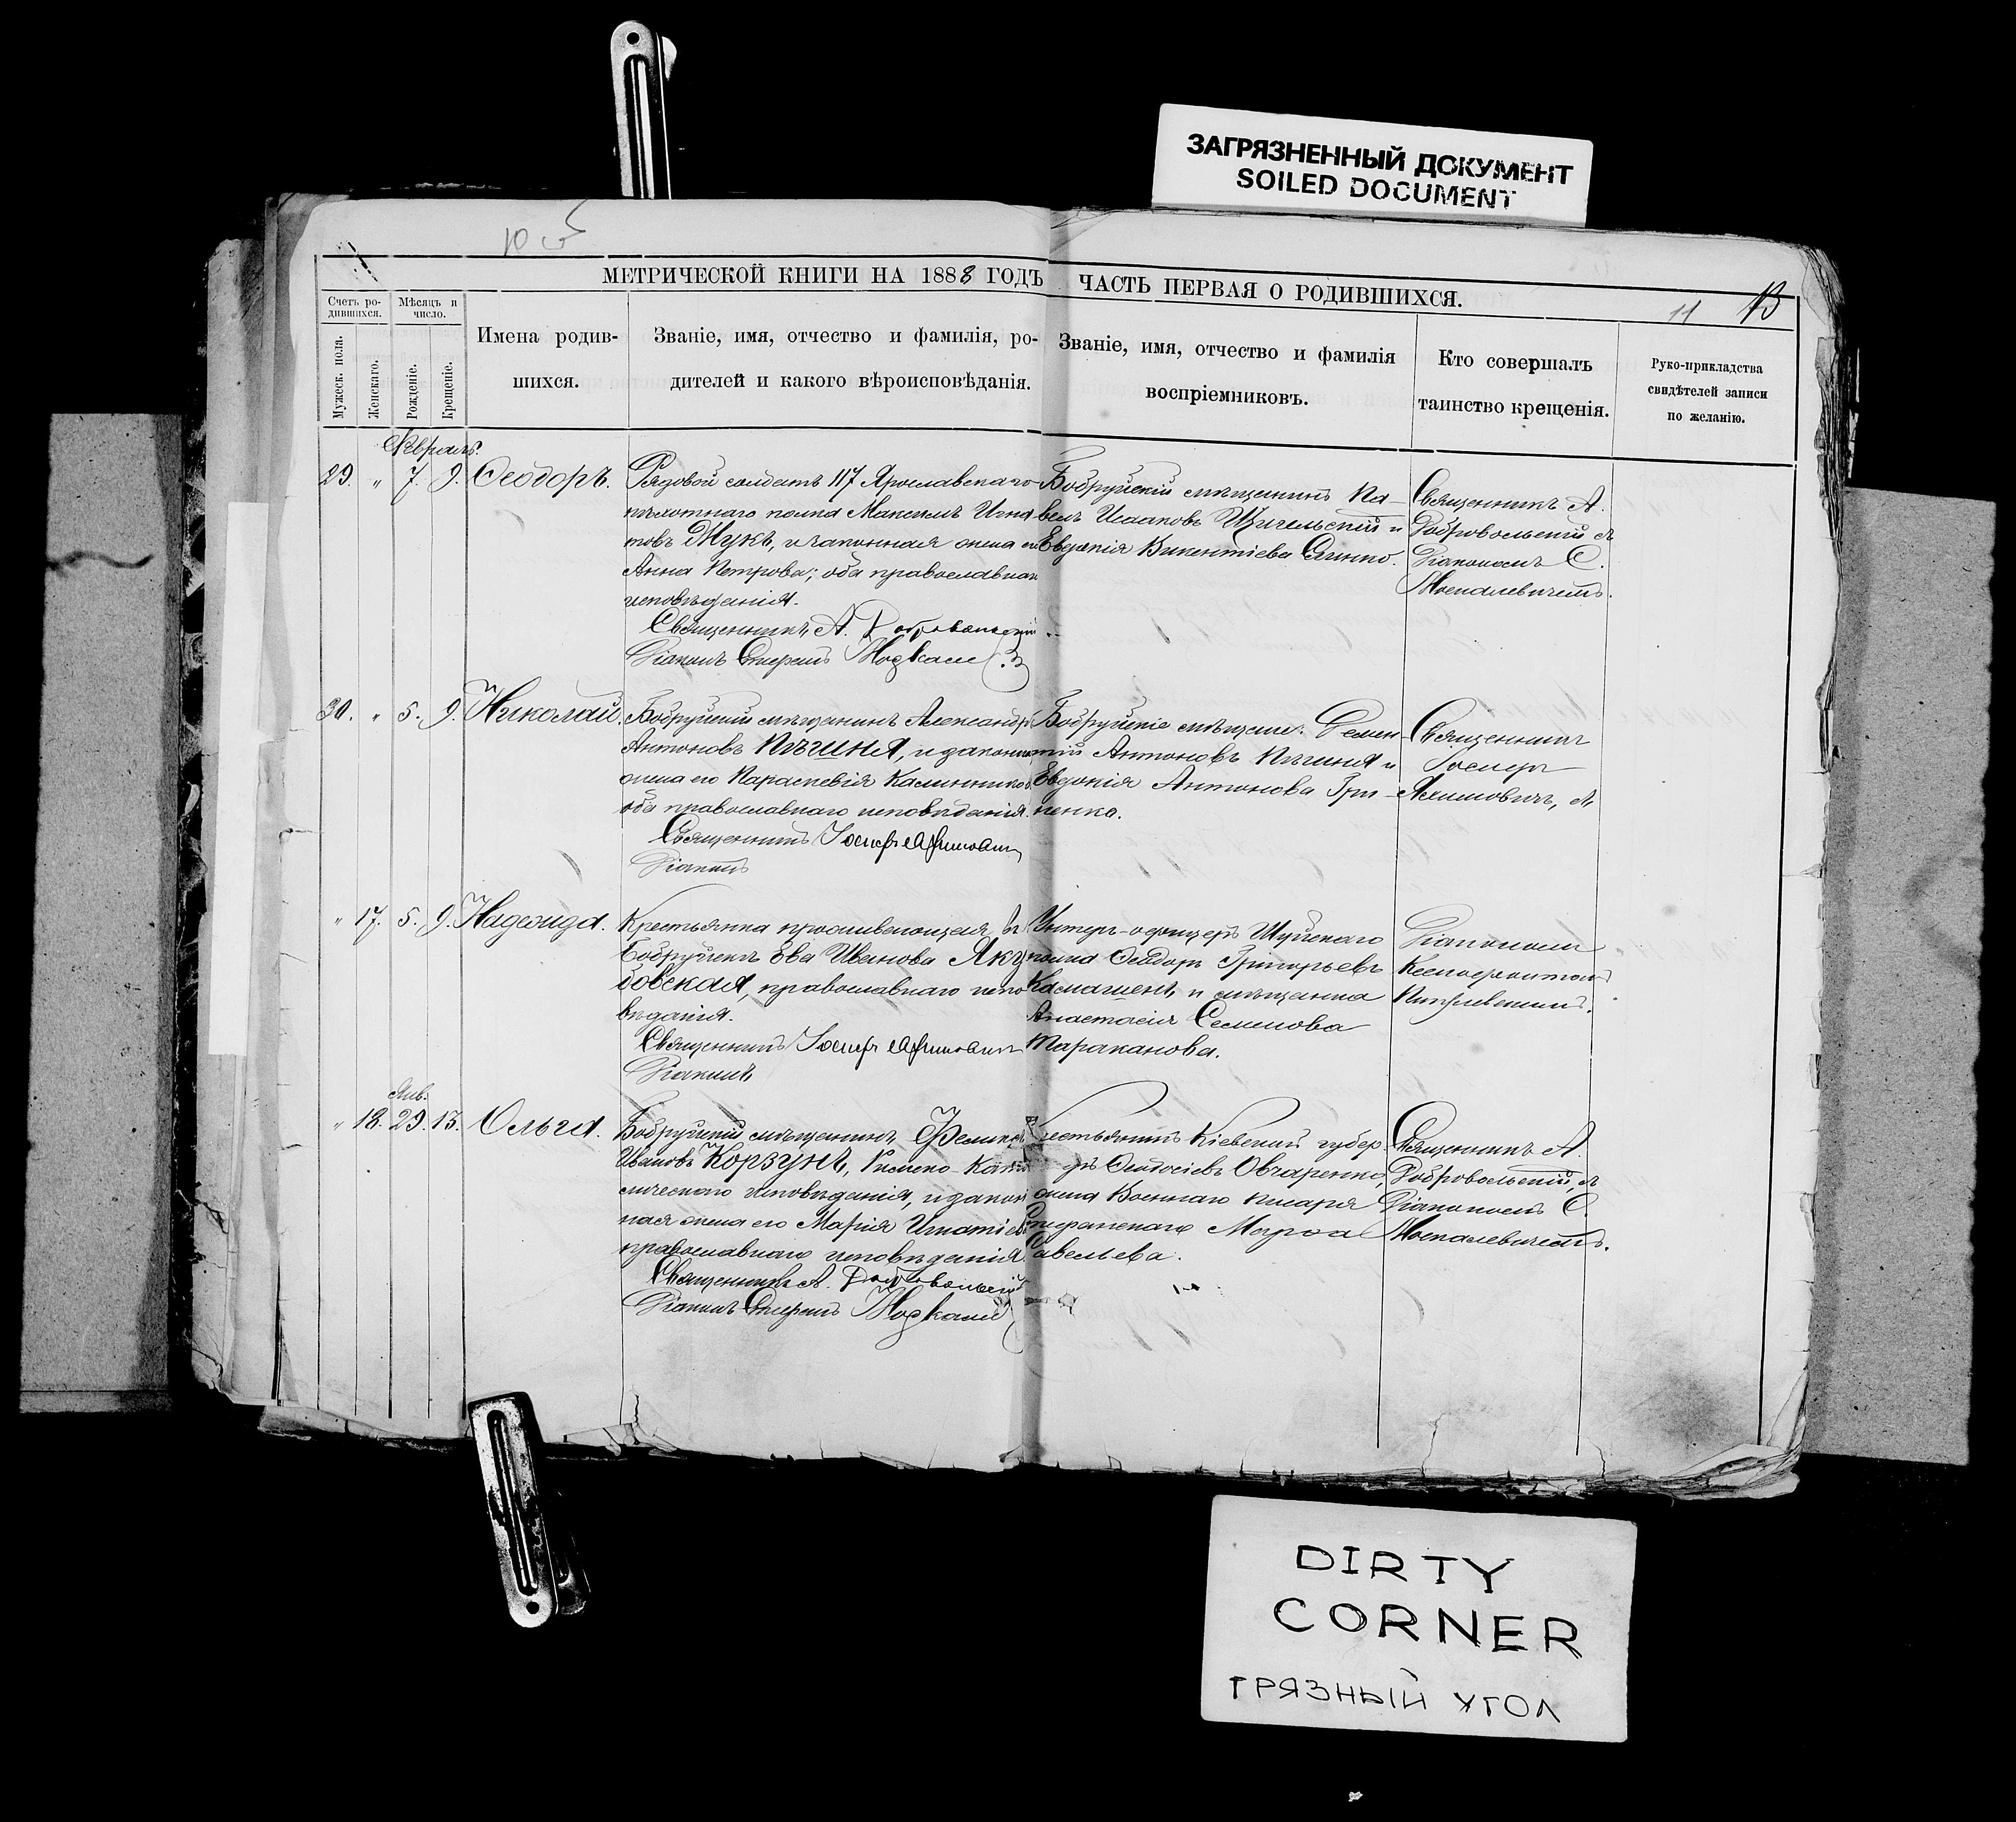 ЗАГРЯЗНЕННЫЙ ДОКУМЕНТ
SOILED DOCUMENT
10 об
МЕТРИЧЕСКОЙ КНИГИ НА 1888 ГОДЪ
ЧАСТЬ ПЕРВАЯ О РОДИВШИХСЯ.
11 13
Счетъ ро-
дившихся.
Мужеск. пола.
Женскаго.
Мѣсяцъ и
число.
Рожденіе.
Крещеніе.
Имена родив-
шихся.
Званіе, имя, отчество и фамилія, ро-
дителей и какого вѣроисповѣданія.
Званіе, имя, отчество и фамилія
воспріемниковъ.
Кто совершалъ
таинство крещенія.
Руко-прикладства
свидѣтелей записи
по желанію.
Февраль.
29. " 7. 9. Ѳеодоръ.
Рядовой солдатъ 117 Ярославскаго
пѣхотнаго полка Максимъ Игна
товъ Жукъ, и законная жена его
Анна Петрова; оба православнаго
исповѣданія.
Священникъ А. Добровольскій
Діаконъ
Бобруйскій мѣщанинъ Па-
велъ Исааковъ и
Евдокія Викентіева
Священникъ А.
Добровольскій съ
Діакономъ С.
30. " 5. 9. Николай.
Бобруйскій мѣщанинъ Александръ
Антоновъ Пѣшня, и законная
жена его Параскевія Калинникова
оба православнаго исповѣданія.
Священникъ Іосифъ
Діаконъ
Бобруйскіе мѣщане: Семен-
тій Антоновъ Пѣшня и
Евдокія Антонова Гри-
ненко.
Священникъ
Іосифъ
" 17. 5. 9. Надежда.
Крестьянка проживающая въ
Бобруйскѣ Ева Иванова Яку
бовская, православнаго испо
вѣданія.
Священникъ Іосифъ
Діаконъ
Унтеръ-офицеръ Шуйскаго
полка Ѳеодоръ Григорьевъ
и мѣщанка
Анастасія Семенова
Тараканова.
Діакономъ
Ксенофонтомъ
Янв.
" 18. 29. 13. Ольга.
Бобруйскій мѣщанинъ Феликсъ
Ивановъ Корзунъ, Римско-Като
лическаго исповѣданія, и закон
ная жена его Марія Игнатіева
православнаго исповѣданія.
Священникъ А. Добровольскій
Діаконъ
Крестьянинъ Кіевской губер.
Ѳеодосіевъ Овчаренко,
жена Военнаго писаря
Марѳа
Савельева.
Священникъ А.
Добровольскій, съ
Діакономъ С.
DIRTY
CORNER
ГРЯЗНЫЙ УГОЛ